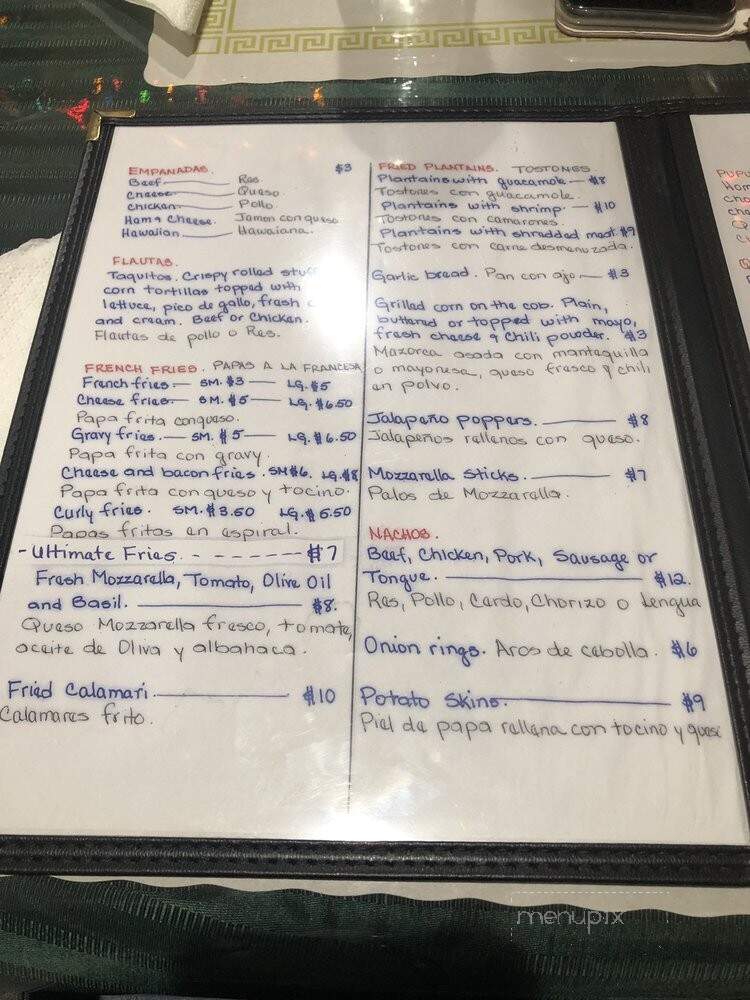 EMPANADAS. $3
Beef Res.
Cheese Queso
Chicken Pollo.
Ham & Cheese. Jamon con queso
Hawaiian Hawaiana.
FLAUTAS.
Taquitos. Crispy rolled
corn tortillas topped with
lettuce, pico de gallo, fresh
and cream. Beef or Chicken.
Flautas de pollo o Res.
FRENCH FRIES. PAPAS A LA FRANCESA
French fries — SM. $3 — LG. $5
Cheese fries — SM. $5 — LG. $6.50
Papa frita con queso.
Gravy fries. — SM. $5 — LG. $6.50
Papa frita con gravy.
Cheese and bacon fries. SM $6. LG. $8
Papa frita con queso y tocino.
Curly fries. SM. $3.50 LG. $5.50
Papas fritas en espiral.
- Ultimate Fries. - - - - - - - - $7
Fresh Mozzarella, Tomato, Olive Oil
and Basil. — $8.
Queso Mozzarella fresco, tomate,
aceite de Oliva y albahaca.
Fried Calamari — $10
Calamares frito.
FRIED PLANTAINS. TOSTONES
Plantains with guacamole — $8
Tostones con guacamole.
Plantains with shrimp. — $10
Tostones con camarones.
Plantains with shredded meat $9
Tostones con carne desmenuzada.
Garlic bread. Pan con ajo — $3
Grilled corn on the cob. Plain,
buttered or topped with mayo,
fresh cheese & Chili powder. $3
Mazorca asada con mantequilla
o mayonesa, queso fresco y chili
en polvo.
Jalapeño poppers. — $8
Jalapeños rellenos con queso.
Mozzarella Sticks. — $7
Palos de Mozzarella.
NACHOS.
Beef, Chicken, Pork, Sausage or
Tongue. — $12.
Res, Pollo, Cerdo, Chorizo o Lengua
Onion rings. Aros de cebolla. $6
Potato Skins. — $9
Piel de papa rellena con tocino y queso
menupix